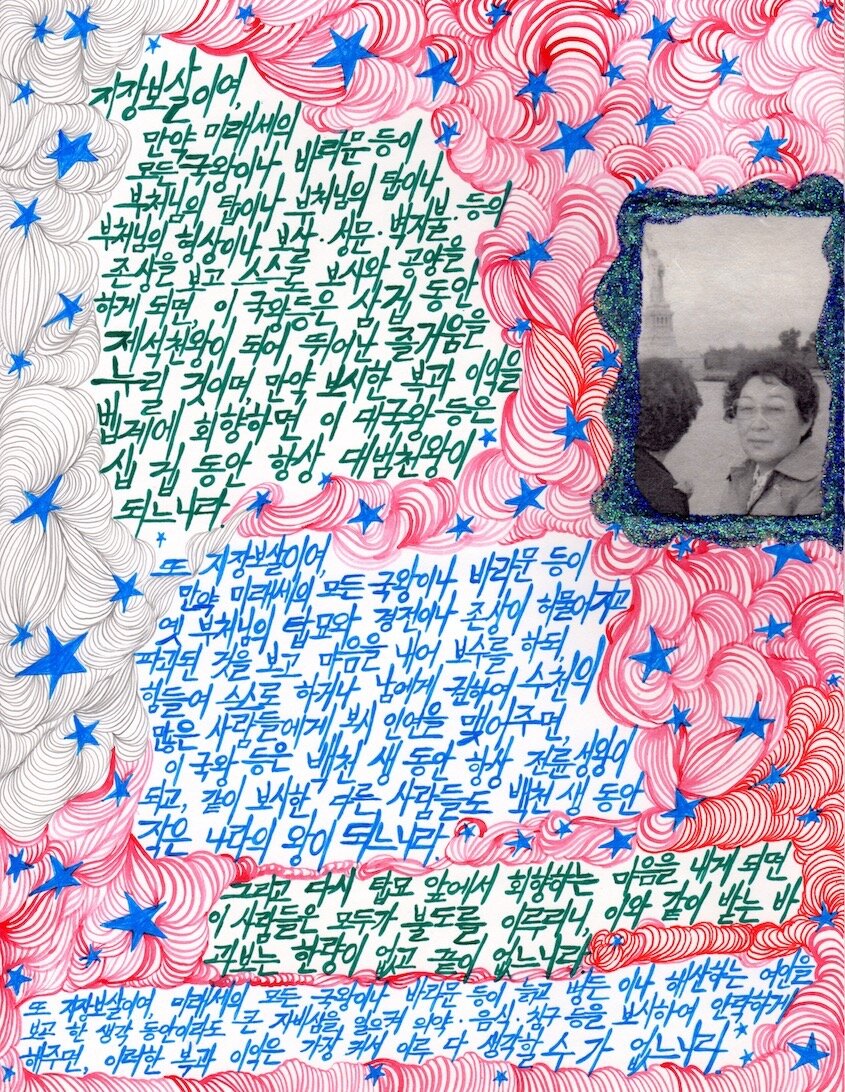 지장보살이여,
만약 미래세의
모든 국왕이나 바라문 등이
부처님의 탑이나 부처님의 탑이나
부처님의 형상이나 보살·성문·벽지불·등의
존상을 보고 스스로 보시와 공양을
하게 되면, 이 국왕등은 삼겁 동안
제석천왕이 되어 뛰어난 즐거움을
누릴 것이며, 만약 보시한 복과 이익을
법계에 회향하면 이 대국왕 등은
십 겁 동안 항상 대범천왕이
되느니라.
또 지장보살이여
만약 미래세의 모든 국왕이나 바라문 등이
옛 부처님의 탑묘와 경전이나 존상이 허물어지고
파괴된 것을 보고 마음을 내어 보수를 하되,
힘들여 스스로 하거나 남에게 권하여 수천의
많은 사람들에게 보시 인연을 맺어주면,
이 국왕 등은 백천 생 동안 항상 전륜성왕이
되고, 같이 보시한 다른 사람들도 백천 생 동안
작은 나라의 왕이 되느니라.
그리고 다시 탑묘 앞에서 회향하는 마음을 내게 되면
이 사람들은 모두가 불도를 이루리니, 이와 같이 받는 바
과보는 한량이 없고 끝이 없느니라.
또 지장보살이여, 미래세의 모든 국왕이나 바라문 등이 늙고 병든 이나 해산하는 여인을
보고 한 생각 동안이라도 큰 자비심을 일으켜 의약·음식·침구 등을 보시하여 안락하게
해주면, 이러한 복과 이익은 가장 커서 이루 다 생각할 수 가 없느니라.